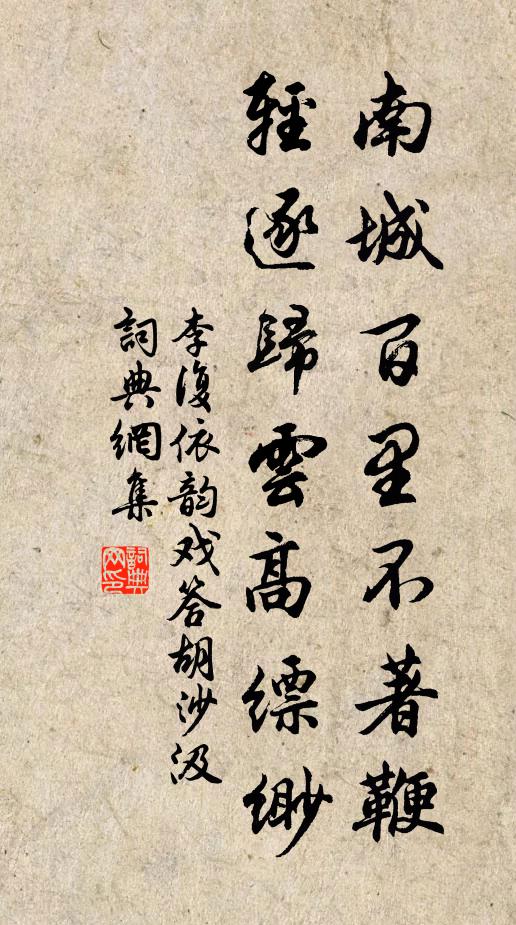 南城百里不著鞭
輕逐歸雲高縹緲
李復依韵戏答胡沙汲
詞典網集
詞典网印